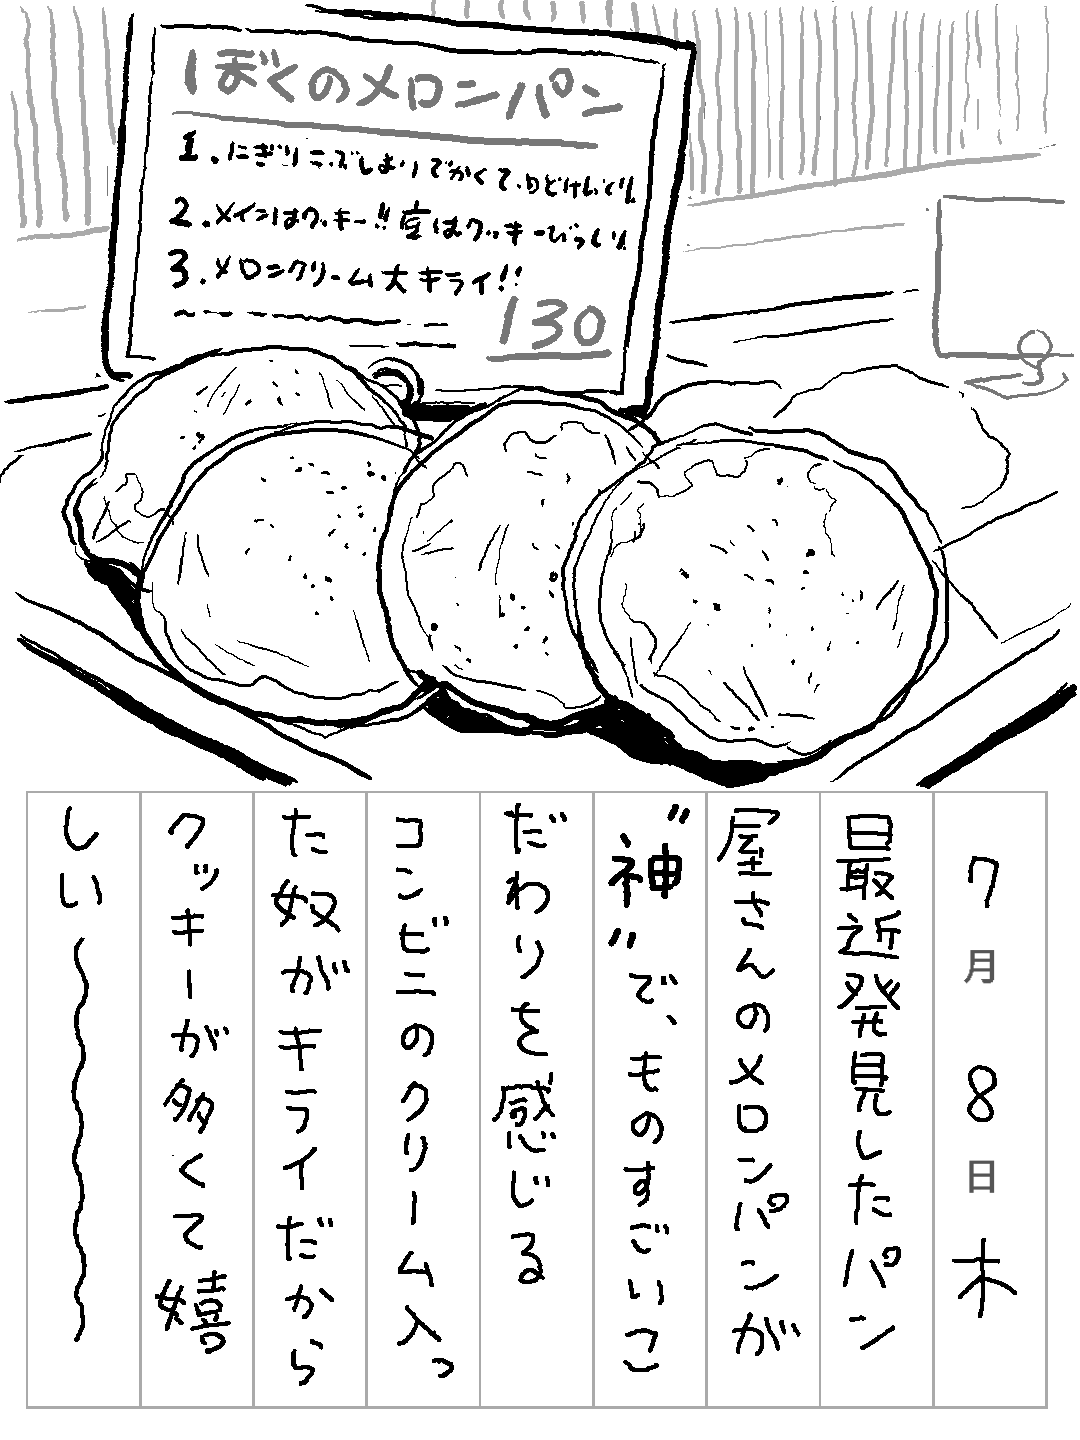 ぼくのメロンパン
1.にぎりこぶしよりでかくて、
2.メインはクッキー!!底はクッキーびっしり
3.メロンクリーム大キライ!!
130
7月8日木
最近発見したパン
屋さんのメロンパンが
"神"で、ものすごいこ
だわりを感じる
コンビニのクリーム入っ
た奴がキライだから
クッキーが多くて嬉
しい〜